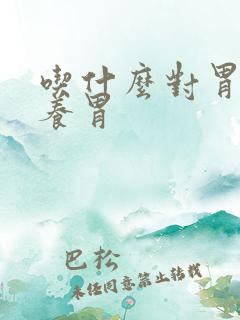 喫什麼對胃
養胃
巴松
未经同意禁止转载